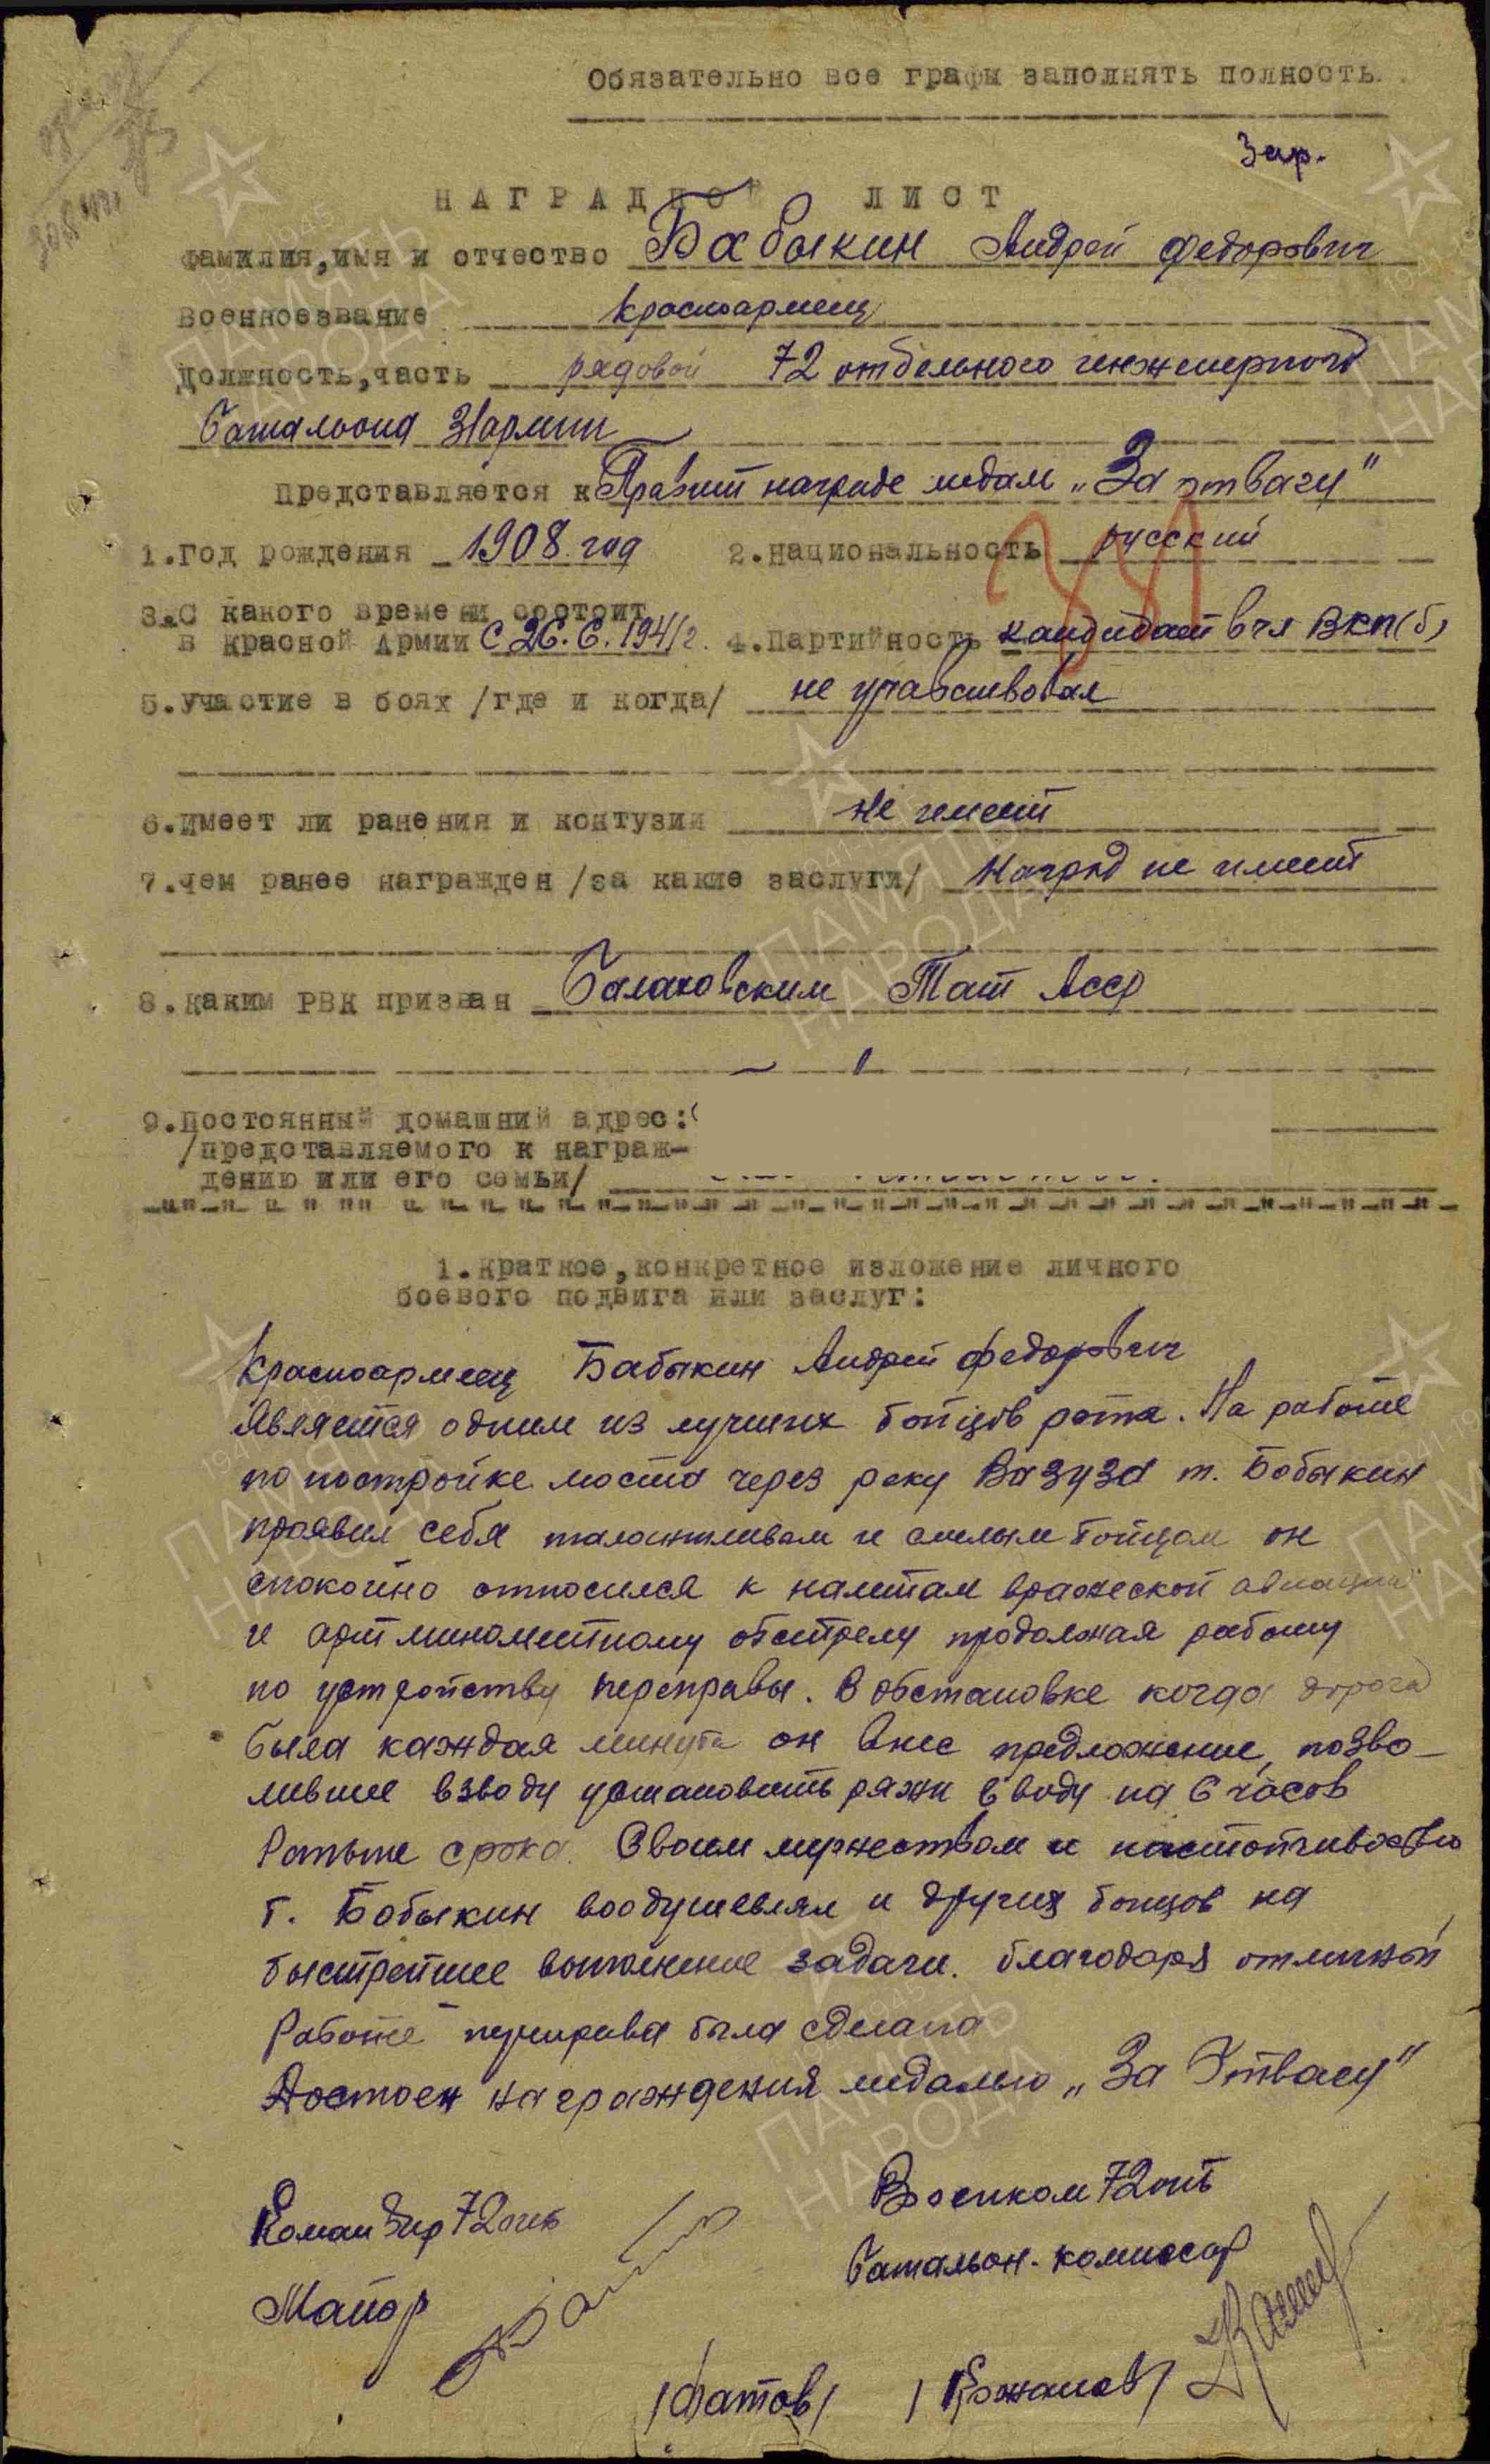 Обязательно все графы заполнять полность
Зар.
НАГРАДНОЙ ЛИСТ
Фамилия,имя и отчество Бабыкин Андрей Федорович
Военноезвание красноармеец
Должность,часть рядовой 72 отдельного инженерного
батальона 31армии
Представляется к Правит награде медал „За отвагу"
1.Год рождения 1908 год 2.Национальность русский
3.С какого времени состоит
в Красной Армии с 26.6.1941г. 4.Партийность кандидат в чл ВКП(б)
5.Участие в боях /где и когда/ не учавствовал
6.Имеет ли ранения и контузии не имеет
7.Чем ранее награжден /за какие заслуги/ Наград не имеет
8.Каким РВК призван Тат Асср
9.Постоянный домашний адрес:
/представляемого к награж-
дению или его семьи/
1.Краткое,конкретное изложение личного
боевого подвига или заслуг:
Красноармеец Бабыкин Андрей Федорович
является одним из лучших бойцов роты. На работе
по постройке моста через реку Вазуза т. Бобыкин
проявил себя талантливым и смелым бойцом он
спокойно относился к налетам вражеской авиации
и арт минометному обстрелу продолжая работу
по устройству переправы. В обстановке когда дорога
была каждая минута он внес предложение, позво-
лившее взводу установить ряжи в воду на 6 часов
раньше срока. Своим мужеством и настойчивостью
т. Бобыкин воодушевлял и других бойцов на
быстрейшее выполнение задачи. благодаря отличной
работе переправа была сделана
Достоен награждения медалью „За Отвагу"
Командир 72оиб Военком 72оиб
Майор Батальон. комиссар
/Фатов/ /Рожанов/
ПАМЯТЬ НАРОДА
1941-1945